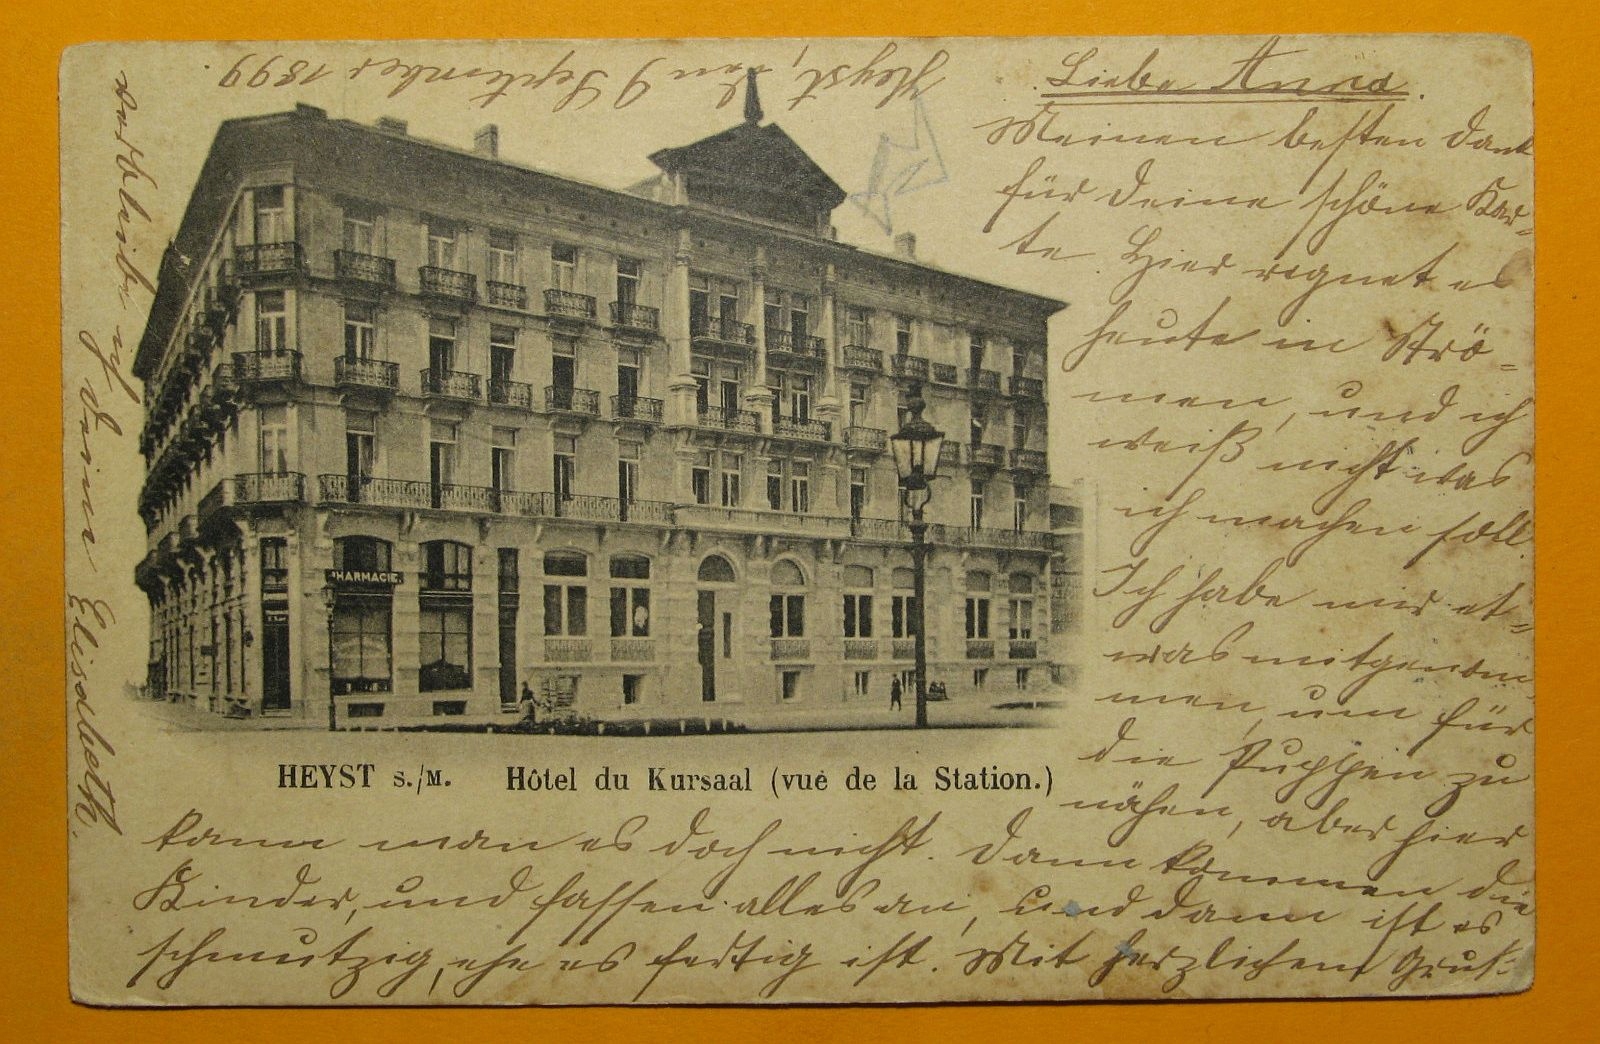 Heyst, den 9 September 1899.
Liebe Anna.
Meinen besten Dank
für Deine schöne Kar=
te. Hier regnet es
heute in Strö=
men, und ich
weiß nicht was
ich machen soll.
Ich habe mir et=
was mitgenom
men, um für
die Puppen zu
nähen, aber hier
kann man es doch nicht. Dann kommen die
Kinder, und fassen alles an, und dann ist es
schmutzig, ehe es fertig ist. Mit herzlichem Gruß
verbleibe ich Deine Elisabeth.
PHARMACIE.
HEYST S./M. Hôtel du Kursaal (vue de la Station.)